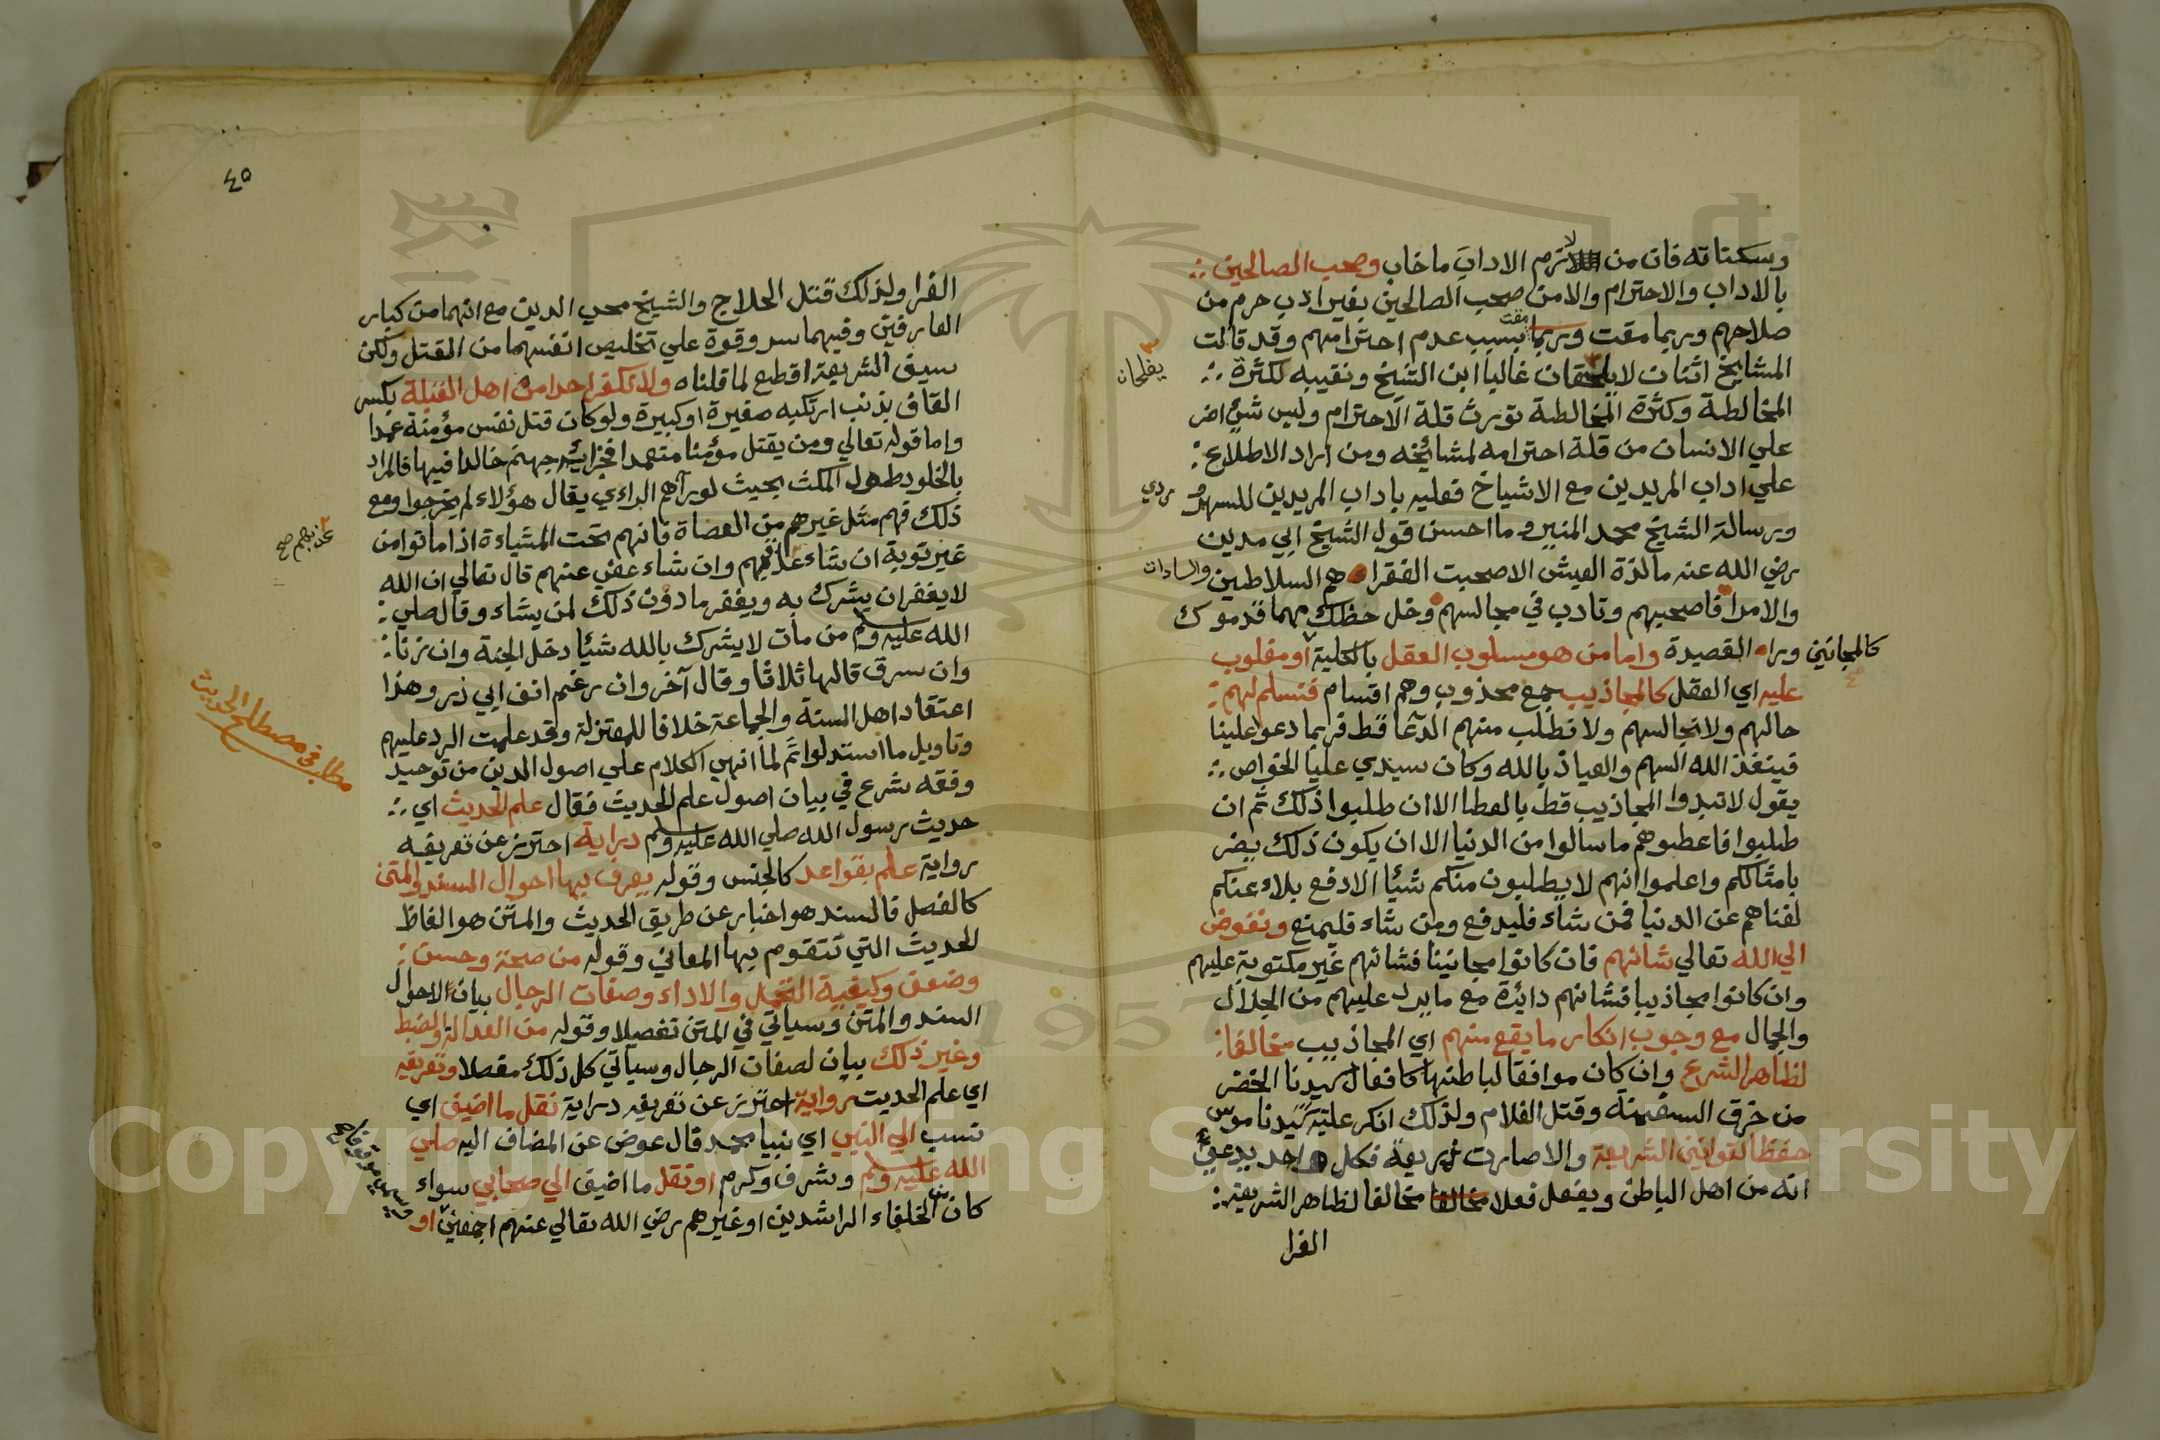 وسكناته فان من لازم الاداب ما خاب وصحب الصالحين
بالاداب والاحترام والا من صحب الصالحين بغير ادب حرم من
صلاحهم وربما مقت بسبب عدم احترامهم وقد قالت
المشايخ اثنان لا يفلحان غالبا ابن الشيخ ونقيبه لكثرة
يفلحان
المخالطة وكثرة المخالطة تورث قلة الاحترام وليس شئ اضر
علي الانسان من قلة احترامه لمشائخه ومن اراد الاطلاع
علي اداب المريدين مع الاشياخ فعليه باداب المريدين للسهرو
ردي
ورسالة الشيخ محمد المنير وما احسن قول الشيخ ابي مدين
رضي الله عنه ما لذة العيش الا صحبت الفقرا هم السلاطين والسادات
والامرا فاصحبهم وتادب في مجالسهم وخل حظك مهما قدموك
ورا القصيدة واما من هو مسلوب العقل بالكلية او مغلوب
كالمجانين
عليه اي العقل كالمجاذيب جمع مجذوب وهم اقسام فنسلم لهم
حالهم ولا نجالسهم ولا نطلب منهم الدعا قط فربما دعوا علينا
فينفذ الله السهم والعياذ بالله وكان سيدي عليا الخواص
يقول لا تبدوا المجاذيب قط بالعطا الا ان طلبوا ذلك ثم ان
طلبوا فاعطوهم ما سالوا من الدنيا الا ان يكون ذلك يضر
بامثالكم واعلموا انهم لا يطلبون منكم شيئا الا دفع بلاء عنكم
لغناهم عن الدنيا فمن شاء فليدفع ومن شاء فليمنع ونفوض
الي الله تعالي شانهم فان كانوا مجانينا فشانهم غير مكتوبة عليهم
وان كانوا مجاذيبا فشانهم دائرة مع ما يرد عليهم من الجلال
والجمال مع وجوب انكار ما يقع منهم اي المجاذيب مخالفا
لظاهر الشرع وان كان موافقا لباطنها كافعال سيدنا الخضر
من خرق السفينة وقتل الغلام ولذلك انكر عليه سيدنا موسي
حفظا لقوانين الشريعة والا صارت ذريعة فكل واحد يدعي
انه من اهل الباطن ويفعل فعلا مخالفا لظاهر الشريعة
الغرا
٤٥
الغرا ولذلك قتل الحلاج والشيخ محي الدين مع انهما من كبار
العارفين وفيهما سر وقوة علي تخليص انفسهما من القتل ولكن
سيف الشريعة اقطع لما قلناه ولا نكفر احدا من اهل القبلة بكسر
القاف بذنب ارتكبه صغيرة او كبيرة ولو كان قتل نفس مؤمنة عمدا
واما قوله تعالي ومن يقتل مؤمنا متعمدا فجزائه جهنم خالدا فيها فالمراد
بالخلود طول المكث بحيث لو رآهم الراءي يقال هؤلاء لم يخرجوا ومع
ذلك فهم مثل غيرهم من العصاة فانهم تحت المشياءة اذا ماتوا من
غير توبة ان شاء عذبهم وان شاء عفي عنهم قال تعالي ان الله
عذبهم صح
لا يغفر ان يشرك به ويغفر ما دون ذلك لمن يشاء وقال صلي
الله عليه وسلم من مات لا يشرك بالله شيئا دخل الجنة وان زنا
وان سرق قالها ثلاثا وقال آخر وان رغم انف ابي ذر وهذا
اعتقاد اهل السنة والجماعة خلافا للمعتزلة وقد علمت الرد عليهم
وتاويل ما استدلوا ثم لما انهي الكلام علي اصول الدين من توحيد
وفقه شرع في بيان اصول علم الحديث فقال علم الحديث اي
مطلب في مصطلح الحديث
حديث رسول الله صلي الله عليه وسلم دراية احترز عن تعريفه
رواية علم بقواعد كالجنس وقوله يعرف بها احوال السند والمتن
كالفصل فالسند هو اخبار عن طريق الحديث والمتن هو الفاظ
الحديث التي تتقوم بها المعاني وقوله من صحة وحسن
وضعف وكيفية التحمل والاداء وصفات الرجال بيان لاحوال
السند والمتن وسياتي في المتن تفصيلا وقوله من العدالة والضبط
وغير ذلك بيان لصفات الرجال وسياتي كل ذلك مفصلا وتعريفه
اي علم الحديث رواية احترز عن تعريفه دراية نقل ما اضيف اي
نسب الي النبي اي نبينا محمد قال عوض عن المضاف اليه صلي
الله عليه وسلم وشرف وكرم او نقل ما اضيف الي صحابي سواء
كان من الخلفاء الراشدين او غيرهم رضي الله تعالي عنهم اجمعين او
Copyright © King Saud University
1957